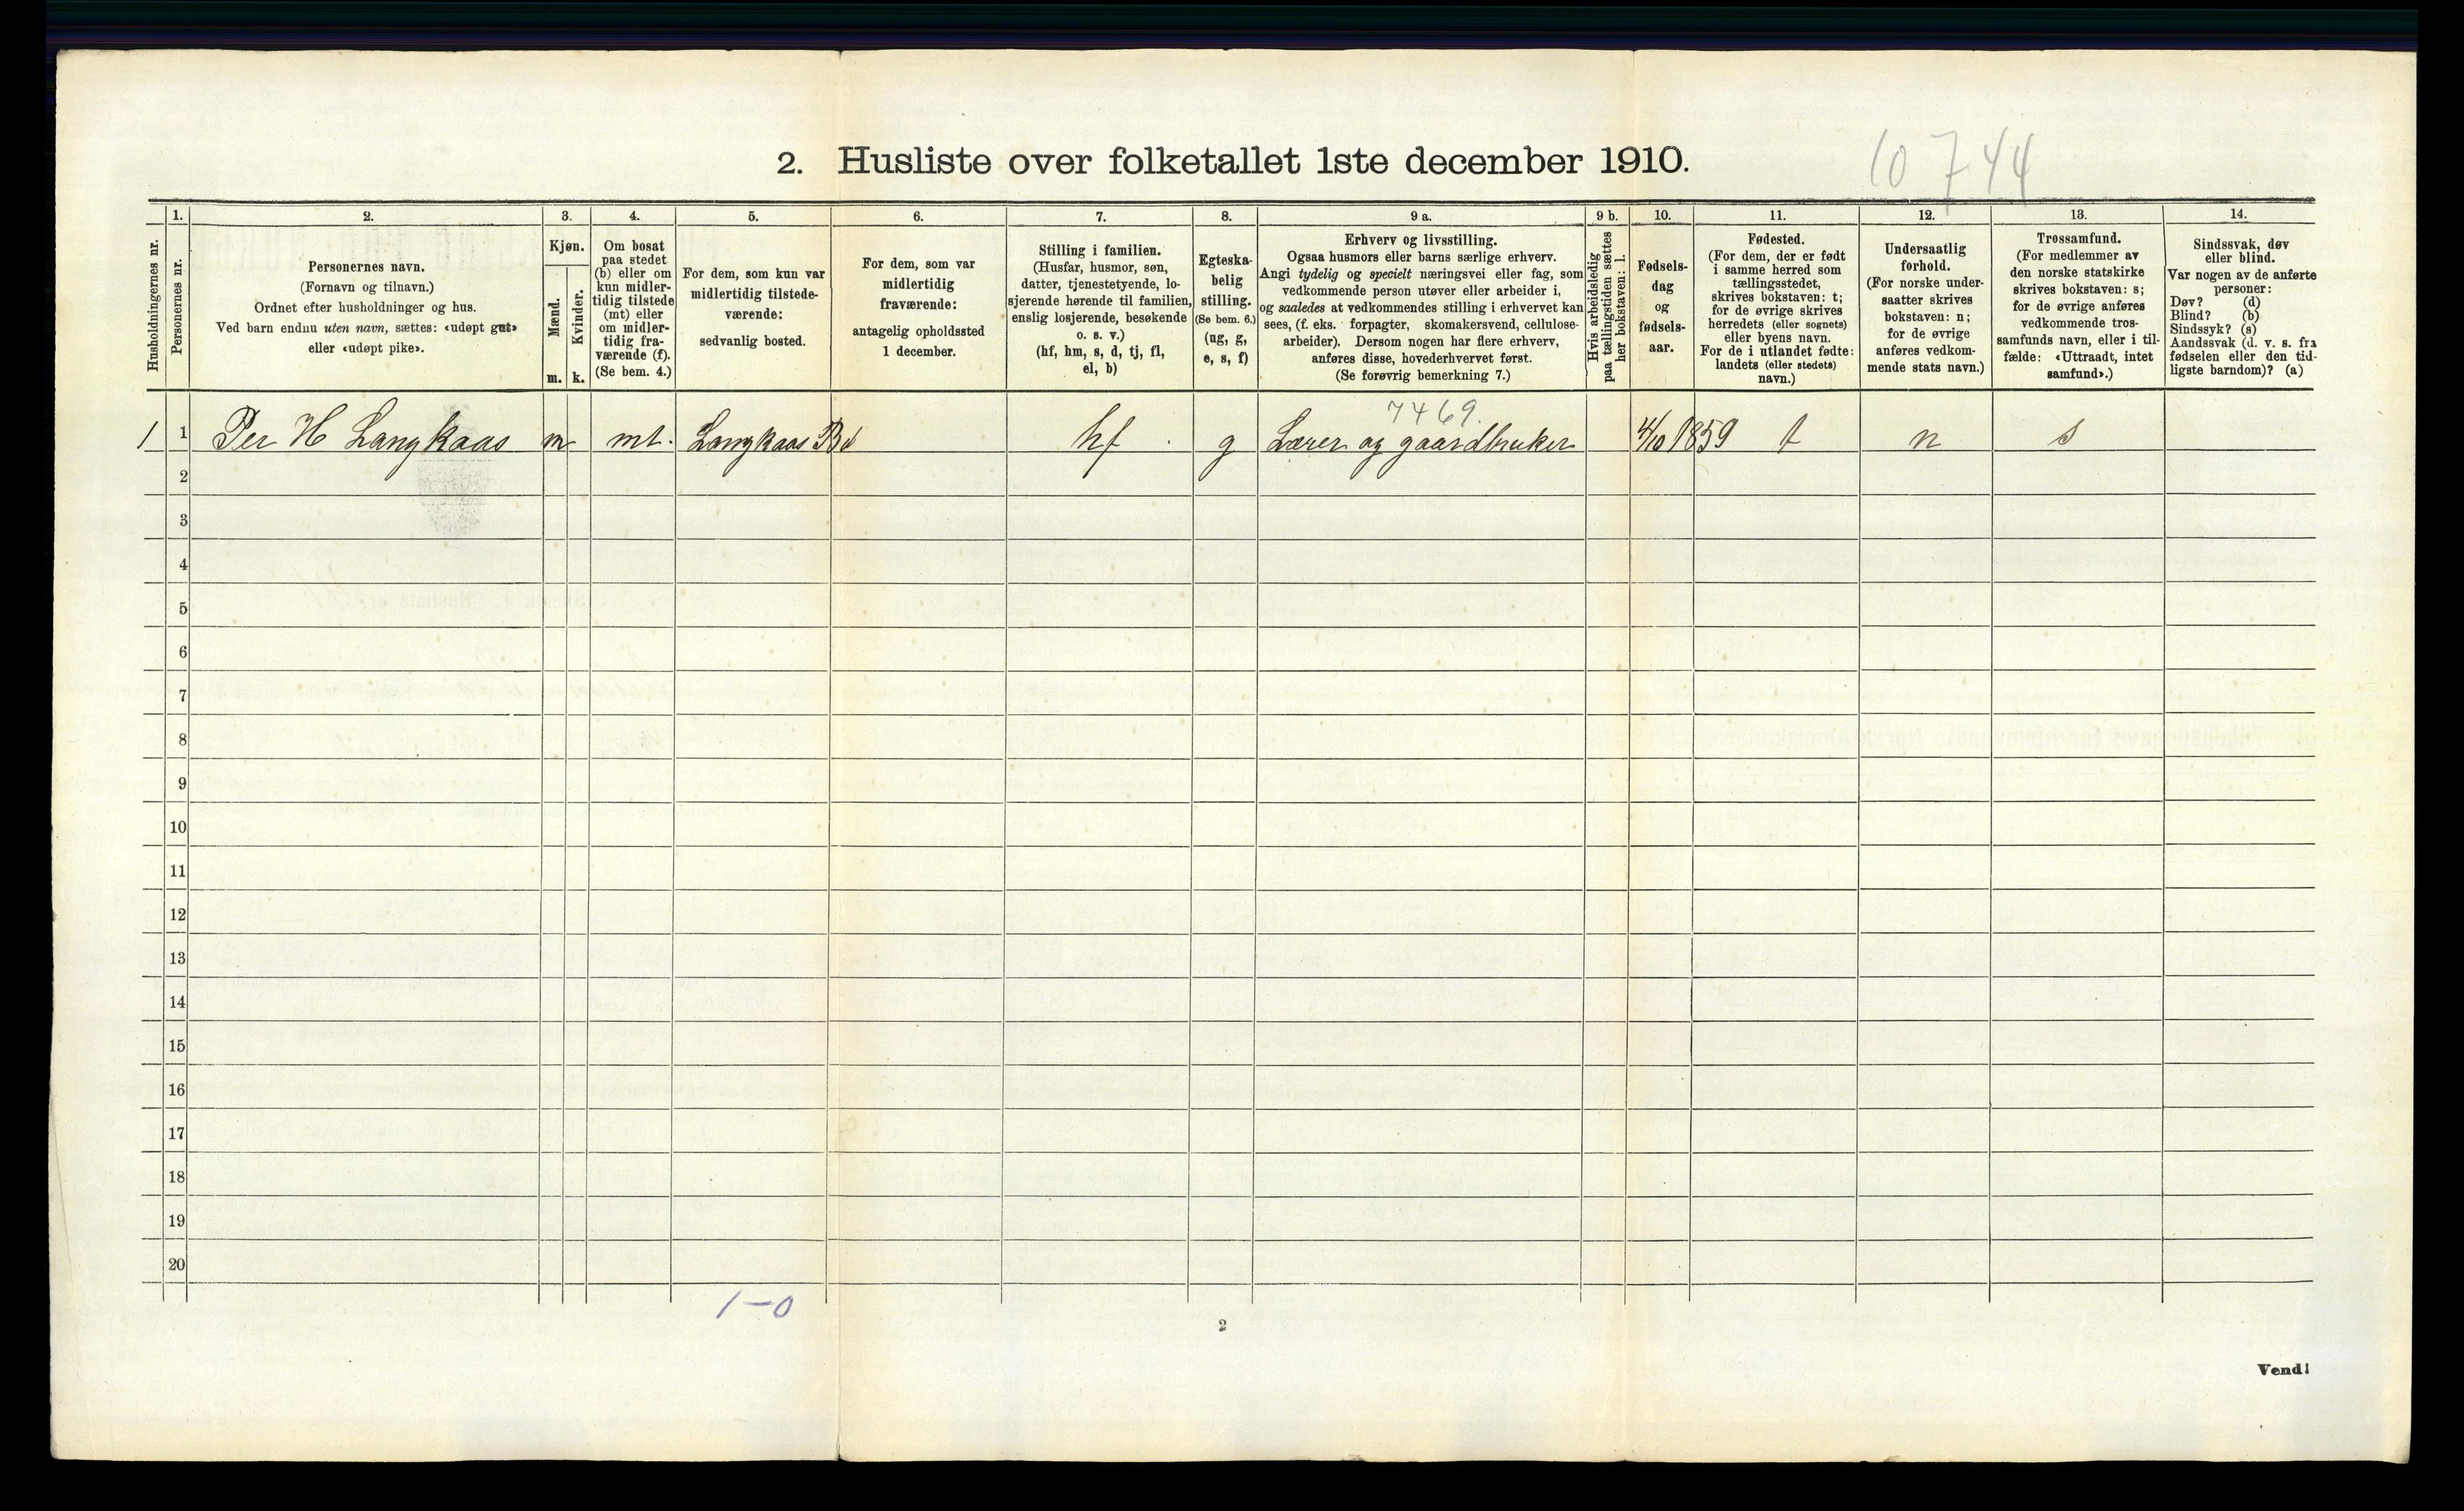 10 744
2. Husliste over folketallet 1ste december 1910.
Husholdningernes nr.
1.
Personernes nr.
2.
Personernes navn.
(Fornavn og tilnavn.)
Ordnet efter husholdninger og hus.
Ved barn endnu uten navn, sættes: «udøpt gut»
eller «udøpt pike».
3.
Kjøn.
Mænd.
m.
Kvinder.
k.
4.
Om bosat
paa stedet
(b) eller om
kun midler-
tidig tilstede
(mt) eller
om midler-
tidig fra-
værende (f).
(Se bem. 4.)
5.
For dem, som kun var
midlertidig tilstede-
værende:
sedvanlig bosted.
6.
For dem, som var
midlertidig
fraværende:
antagelig opholdssted
1 december.
7.
Stilling i familien.
(Husfar, husmor, søn,
datter, tjenestetyende, lo-
sjerende hørende til familien,
enslig losjerende, besøkende
o. s. v.)
(hf, hm, s, d, tj, fl,
el, b)
8.
Egteska-
belig
stilling.
(Se bem. 6.)
(ug, g,
e, s, f)
9 a.
Erhverv og livsstilling.
Ogsaa husmors eller barns særlige erhverv.
Angi tydelig og specielt næringsvei eller fag, som
vedkommende person utøver eller arbeider i,
og saaledes at vedkommendes stilling i erhvervet kan
sees, (f. eks. forpagter, skomakersvend, cellulose-
arbeider). Dersom nogen har flere erhverv,
anføres disse, hovederhvervet først.
(Se forøvrig bemerkning 7.)
9 b.
Hvis arbeidsledig
paa tællingstiden sættes
her bokstaven: l.
10.
Fødsels-
dag
og
fødsels-
aar.
11.
Fødested.
(For dem, der er født
i samme herred som
tællingsstedet,
skrives bokstaven: t;
for de øvrige skrives
herredets (eller sognets)
eller byens navn.
For de i utlandet fødte:
landets (eller stedets)
navn.)
12.
Undersaatlig
forhold.
(For norske under-
saatter skrives
bokstaven: n;
for de øvrige
anføres vedkom-
mende stats navn.)
13.
Trossamfund.
(For medlemmer av
den norske statskirke
skrives bokstaven: s;
for de øvrige anføres
vedkommende tros-
samfunds navn, eller i til-
fælde: «Uttraadt, intet
samfund».)
14.
Sindssvak, døv
eller blind.
Var nogen av de anførte
personer:
Døv? (d)
Blind? (b)
Sindssyk? (s)
Aandssvak (d. v. s. fra
fødselen eller den tid-
ligste barndom)? (a)
7469.
1 1 Per H Langkaas m mt. Langkaas hf g Lærer og gaardbruker 4/10 1859 t n s
2
3
4
5
6
7
8
9
10
11
12
13
14
15
16
17
18
19
20
1-0
2
Vend!